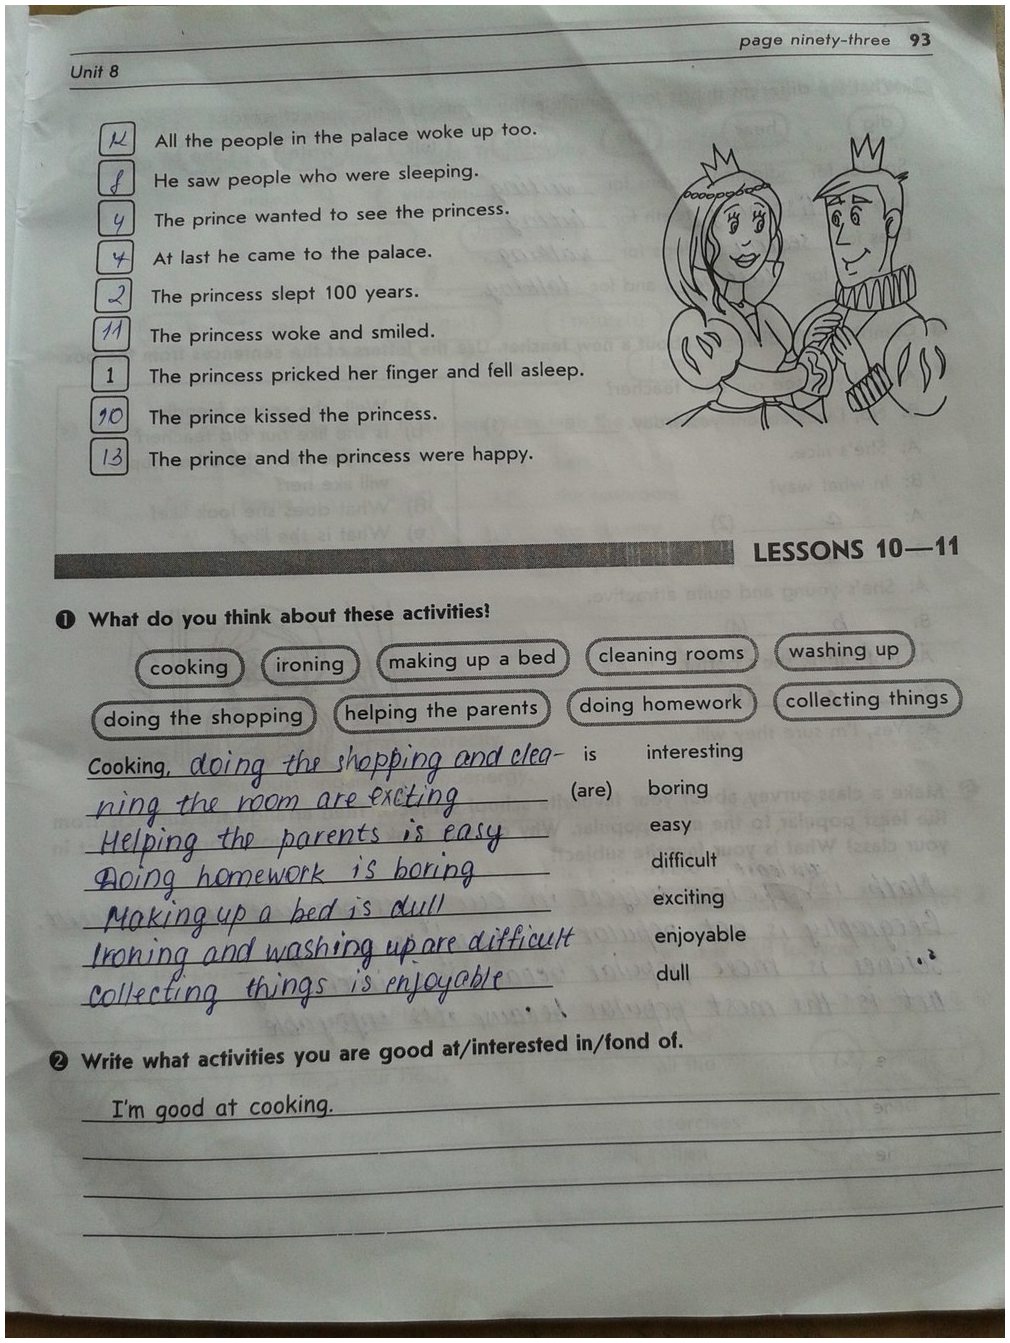 page ninety-three 93
Unit 8
12 All the people in the palace woke up too.
8 He saw people who were sleeping.
4 The prince wanted to see the princess.
7 At last he came to the palace.
2 The princess slept 100 years.
11 The princess woke and smiled.
1 The princess pricked her finger and fell asleep.
10 The prince kissed the princess.
13 The prince and the princess were happy.
LESSONS 10—11
1 What do you think about these activities?
cooking ironing making up a bed cleaning rooms washing up
doing the shopping helping the parents doing homework collecting things
Cooking, doing the shopping and clea- is interesting
ning the room are exciting (are) boring
Helping the parents is easy easy
Doing homework is boring difficult
Making up a bed is dull exciting
Ironing and washing up are difficult enjoyable
collecting things is enjoyable dull
2 Write what activities you are good at/interested in/fond of.
I'm good at cooking.